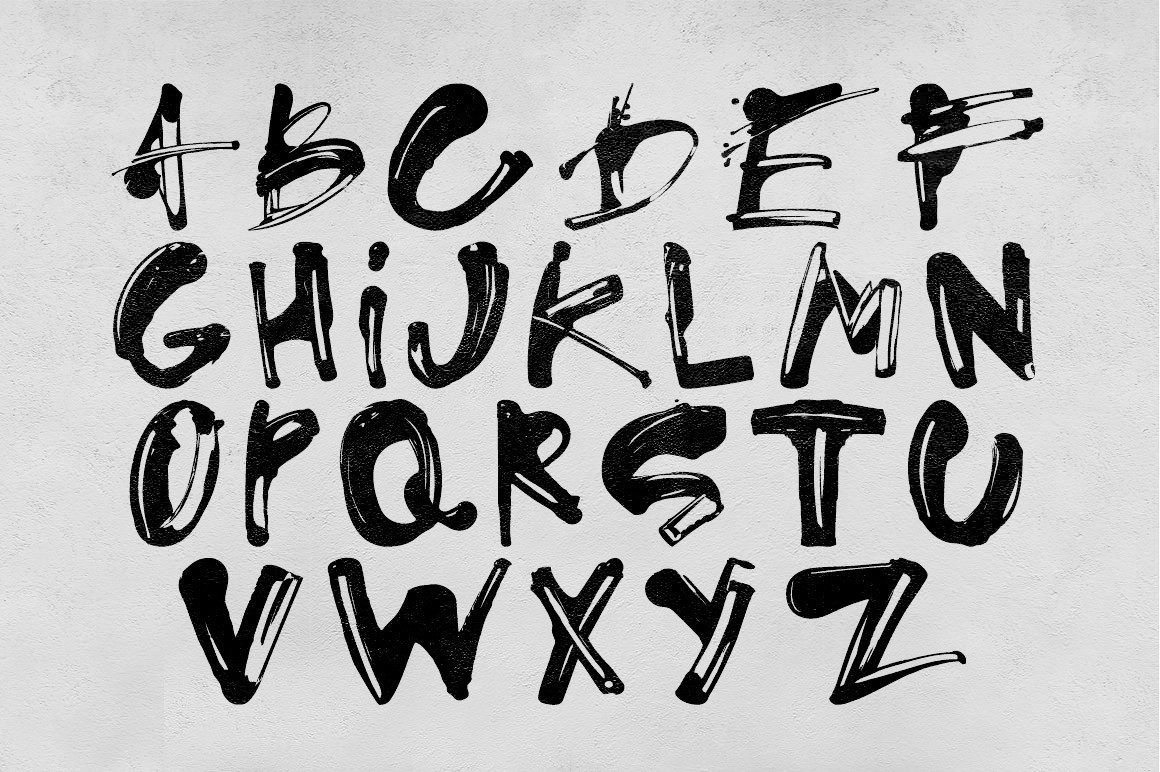 ABCDEF
GHiJKLMN
OPQRSTU
VWXYZ